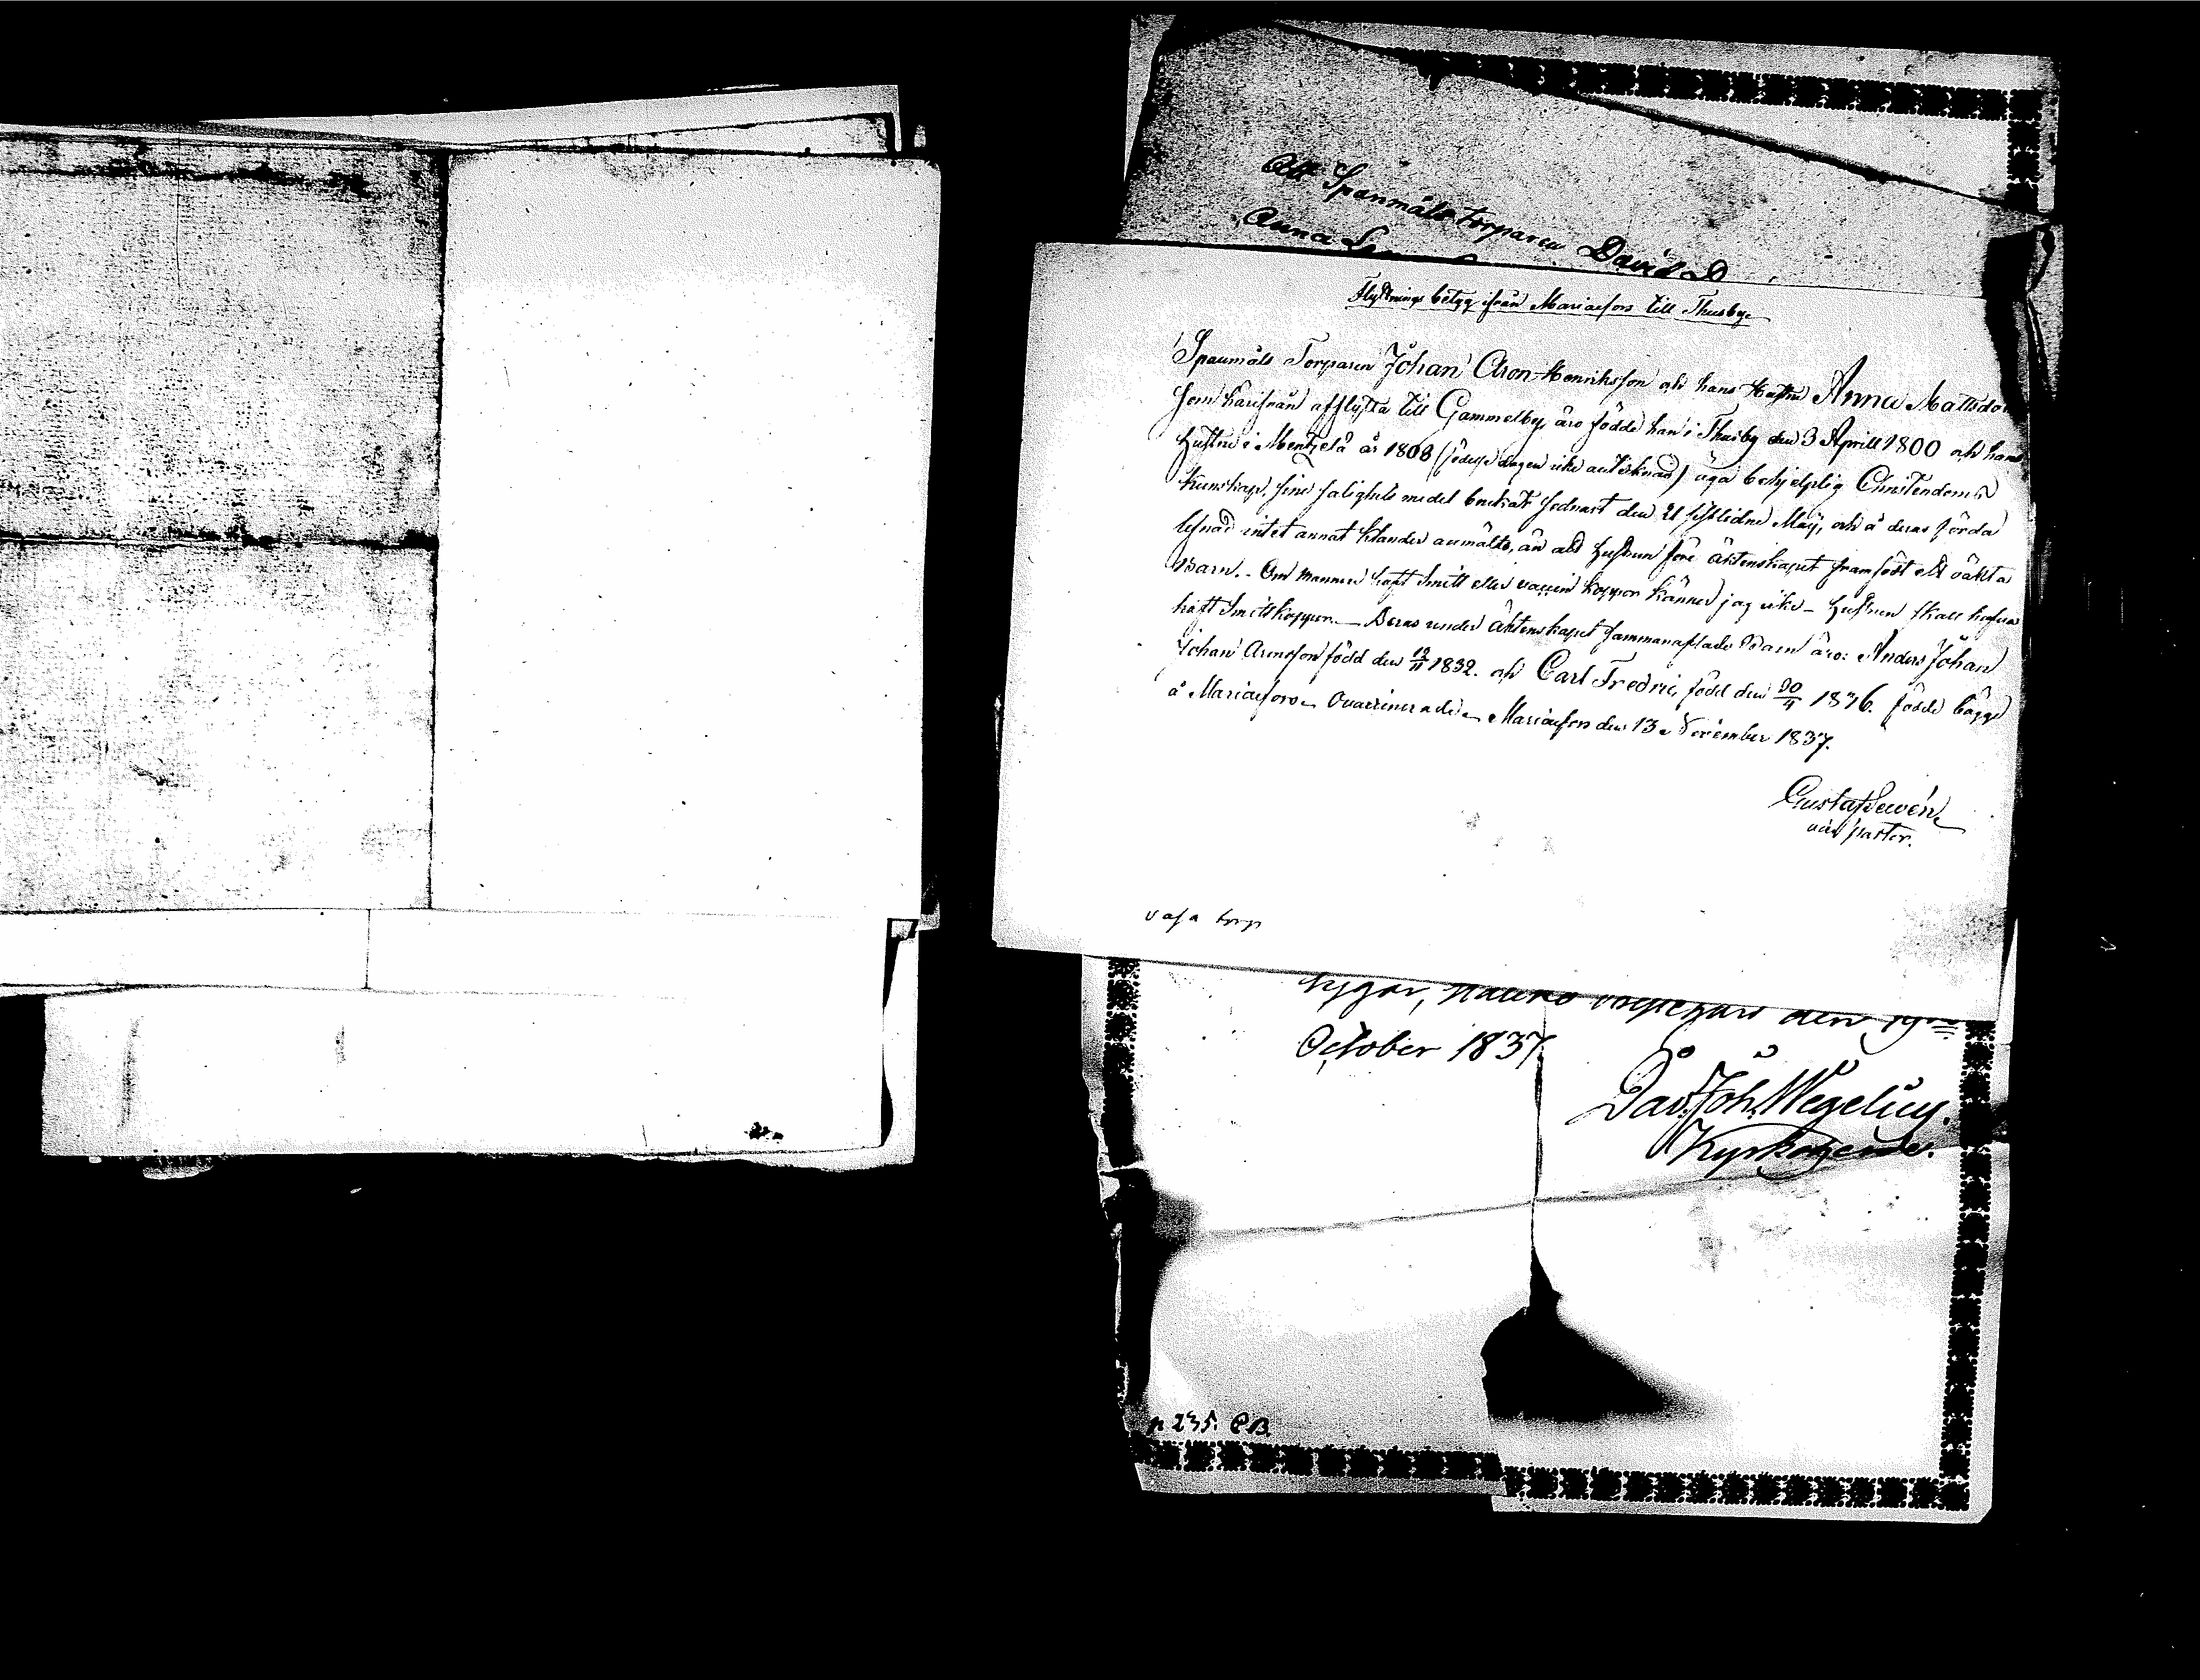 Att Spanmåls torparen David D
Anna
Flyttnings betyg ifrån Mariaefors till Thusby
Spanmåls Torparen Johan Aron Henriksson och hans Hustru Anna Mattsdo
som härifrån afflytta till Gammelby, äro födde han i Thusby den 3 Aprill 1800 och hans
hustru i Mentzelä år 1808 (födelse dagen icke antecknad) äga behjelplig Christendoms
kunskap, sine salighets medel begått sednast den 21 sistlidne Maij, och å deras förda
lefnad intet annat klander anmälts, än att hustrun före äktenskapet framfödt ett oäkta
Barn. - Om mannen haft Smitt eller vaccin koppor känner jag icke - hustrun skall hafva
haft Smittkoppor. - Deras under äktenskapet sammanaflade Barn äro: Anders Johan
Johan Aronsson född den 12/11 1832. och Carl Fredric, född den 20/4 1836. födde bägge
å Mariaefors Mariaefors den 13 November 1837.
Gustaf
Pastor.
torp
den 19
October 1837.
Dav. Joh. Wegelius.
Kyrkoherde.
p 235. CB.